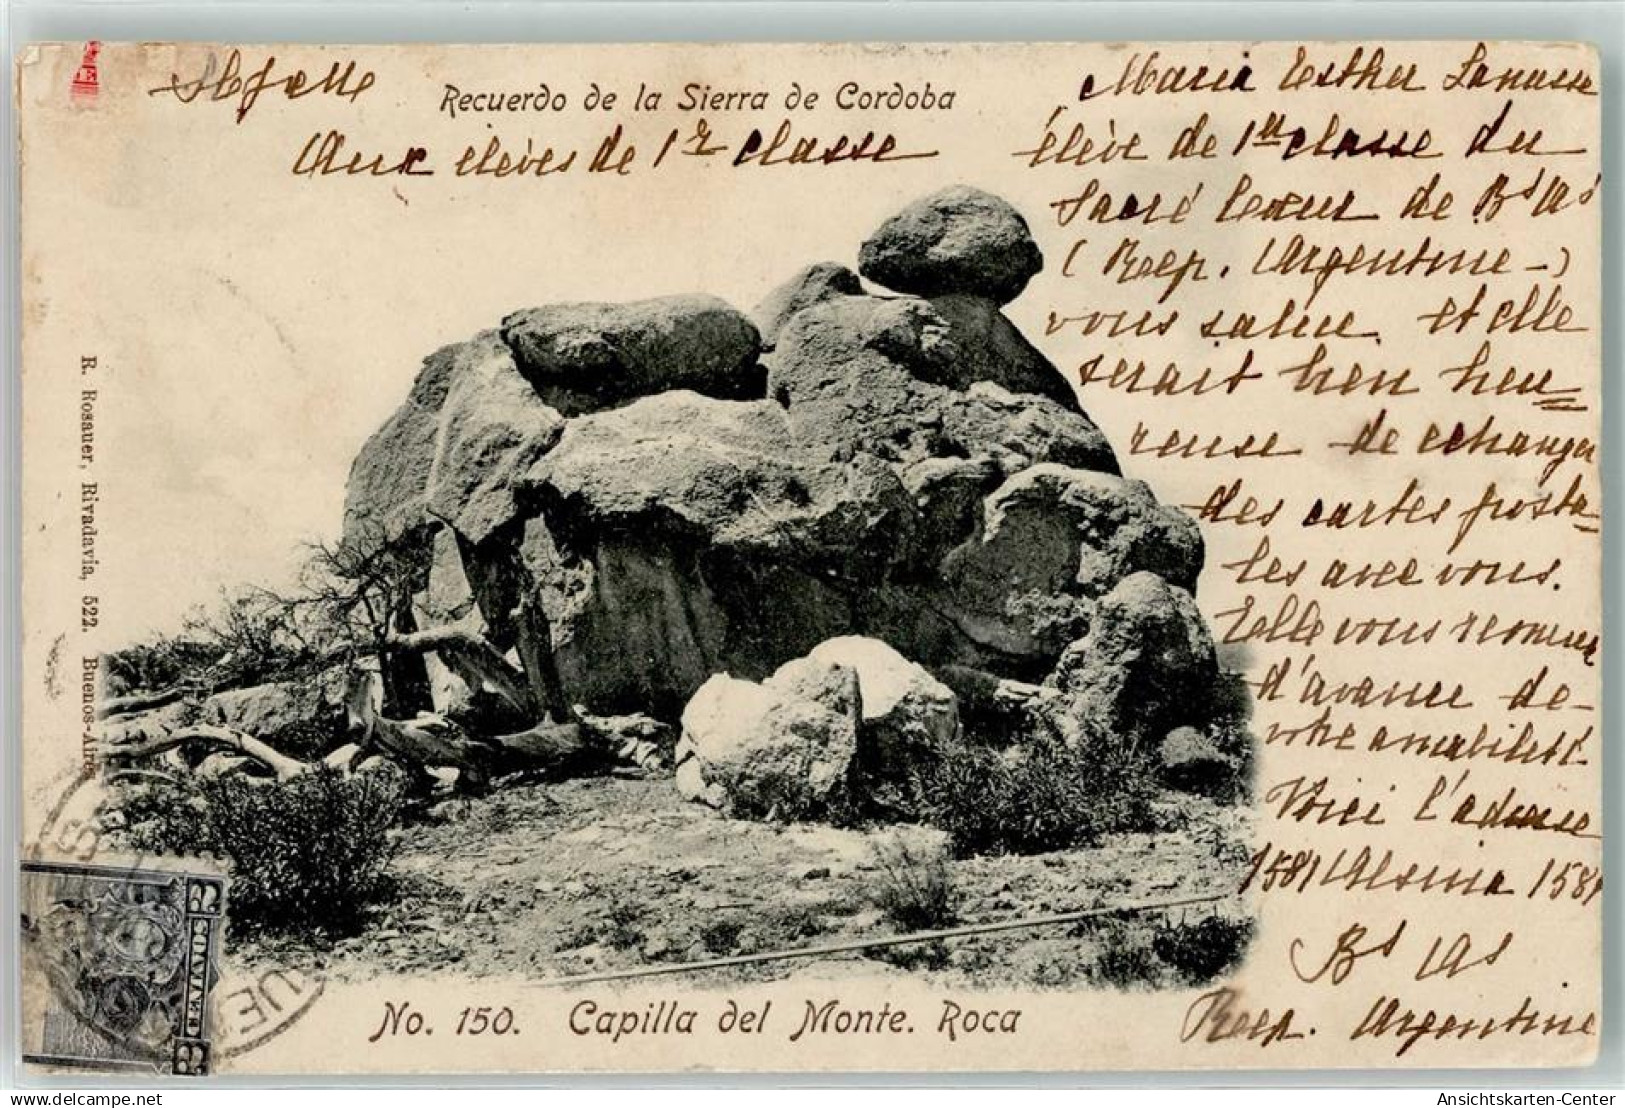 Recuerdo de la Sierra de Cordoba
Aux élèves de 1re classe
Maria Esther
élève de 1re classe du
Sacré Coeur de Bs As
(Rep. Argentine-)
vous salue et elle
serait bien heu=
reuse de echanger
des cartes posta=
les avec vous.
Elle vous
d'avance de
votre amabilité.
Voici l'adresse
1581 Alsina 1581
Bs As
Rep. Argentine
R. Rosauer, Rivadavia, 522. Buenos-Aires
No. 150. Capilla del Monte. Roca
Ansichtskarten-Center